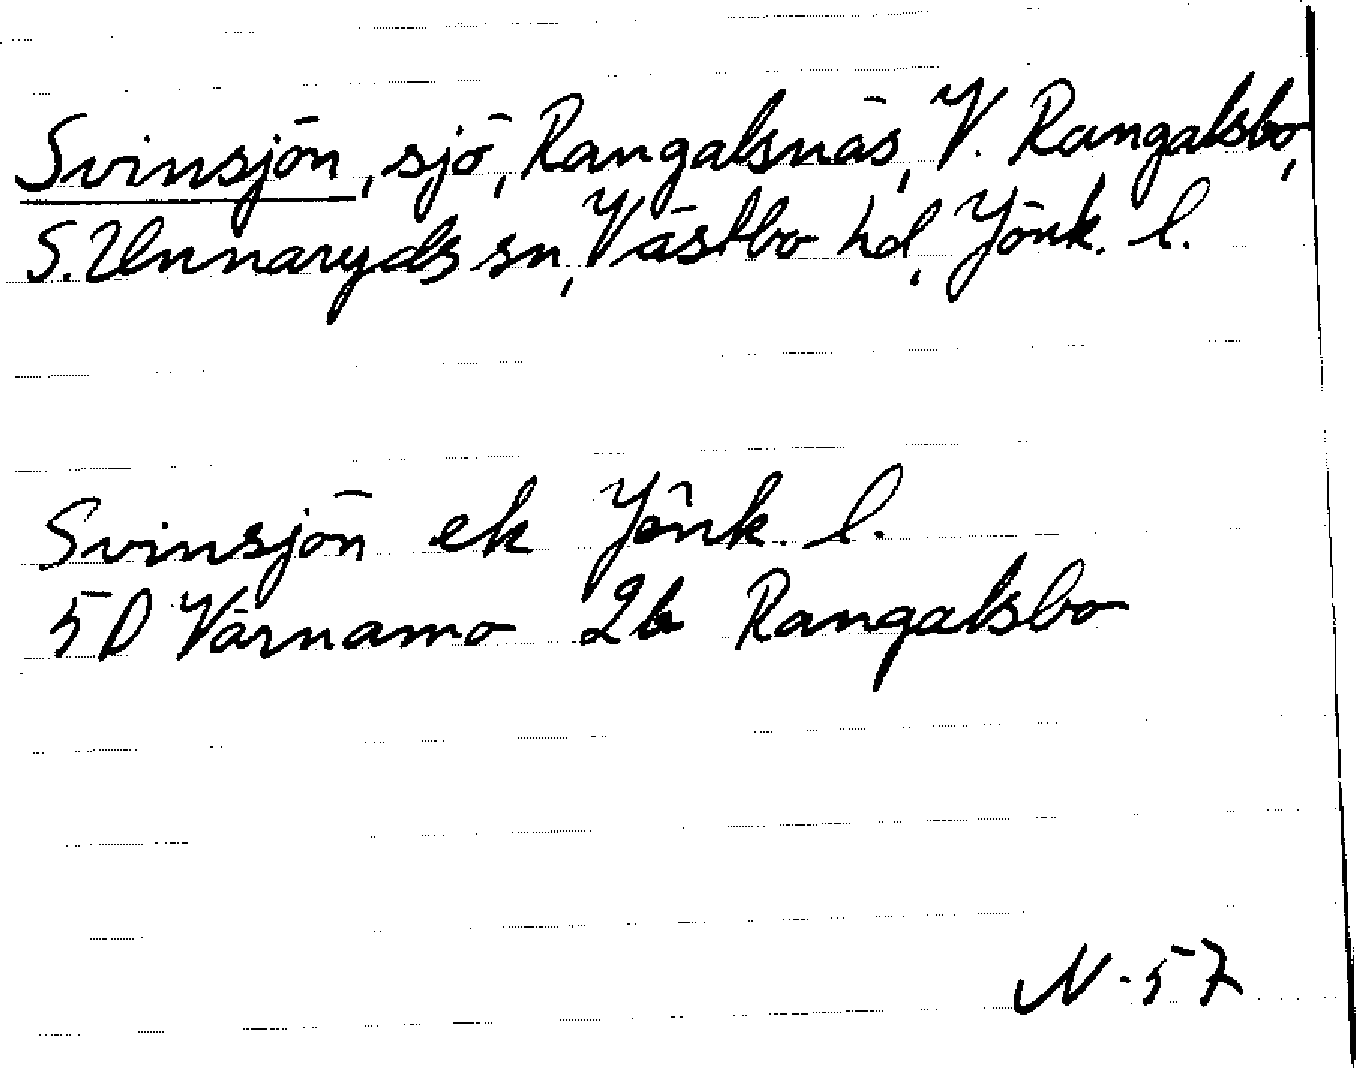 Svinsjön, sjö, Rangalsnäs, V. Rangalsbo,
S. Unnaryds sn, Västbo hd, Jönk. l.
Svinsjön ek Jönk. l.
5D Värnamo 2b Rangalsbo
N-57